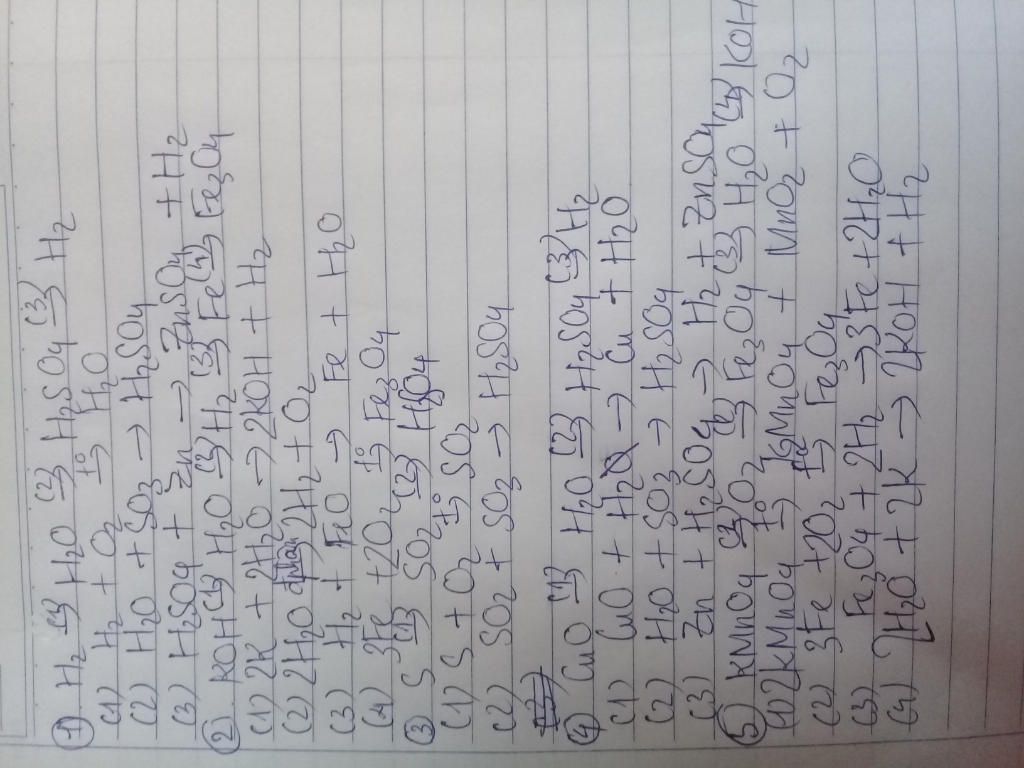 ① H₂ (1)→ H₂O (2)→ H₂SO₄ (3)→ H₂
(1) H₂ + O₂ t°→ H₂O
(2) H₂O + SO₃ → H₂SO₄
(3) H₂SO₄ + Zn → ZnSO₄ + H₂
② KOH (1)→ H₂O (2)→ H₂ (3)→ Fe (4)→ Fe₃O₄
(1) 2K + 2H₂O → 2KOH + H₂
(2) 2H₂O → 2H₂ + O₂
(3) H₂ + FeO → Fe + H₂O
(4) 3Fe + 2O₂ t°→ Fe₃O₄
③ S (1)→ SO₂ (2)→ H₂SO₄
(1) S + O₂ t°→ SO₂
(2) SO₂ + SO₃ → H₂SO₄
④ CuO (1)→ H₂O (2)→ H₂SO₄ (3)→ H₂
(1) CuO + H₂ → Cu + H₂O
(2) H₂O + SO₃ → H₂SO₄
(3) Zn + H₂SO₄ → H₂ + ZnSO₄
⑤ KMnO₄ (1)→ O₂ (2)→ Fe₃O₄ (3)→ H₂O (4)→ KOH
(1) 2KMnO₄ t°→ K₂MnO₄ + MnO₂ + O₂
(2) 3Fe + 2O₂ t°→ Fe₃O₄
(3) Fe₃O₄ + 2H₂ → 3Fe + 2H₂O
(4) 2H₂O + 2K → 2KOH + H₂